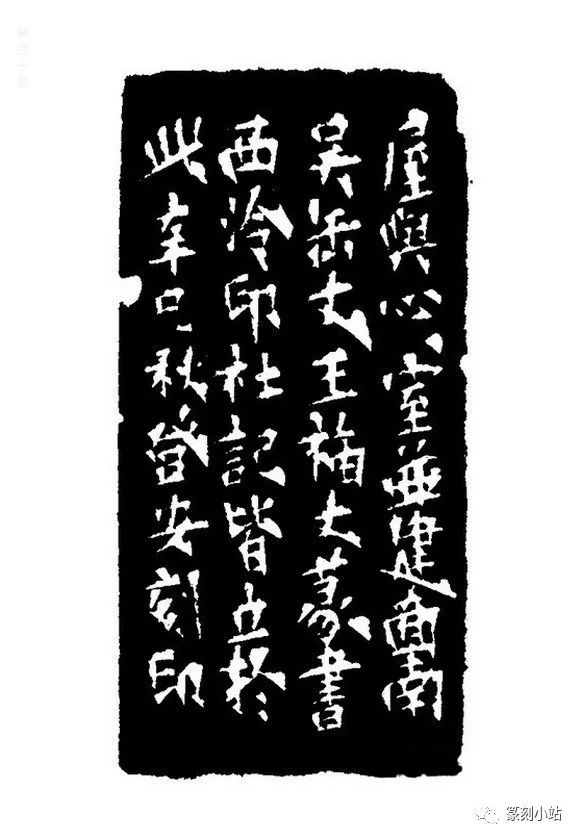 屋與心心室並建面南
吴缶丈王福丈篆書
西泠印社記皆立於
此辛巳秋訄安刻印
篆刻小站